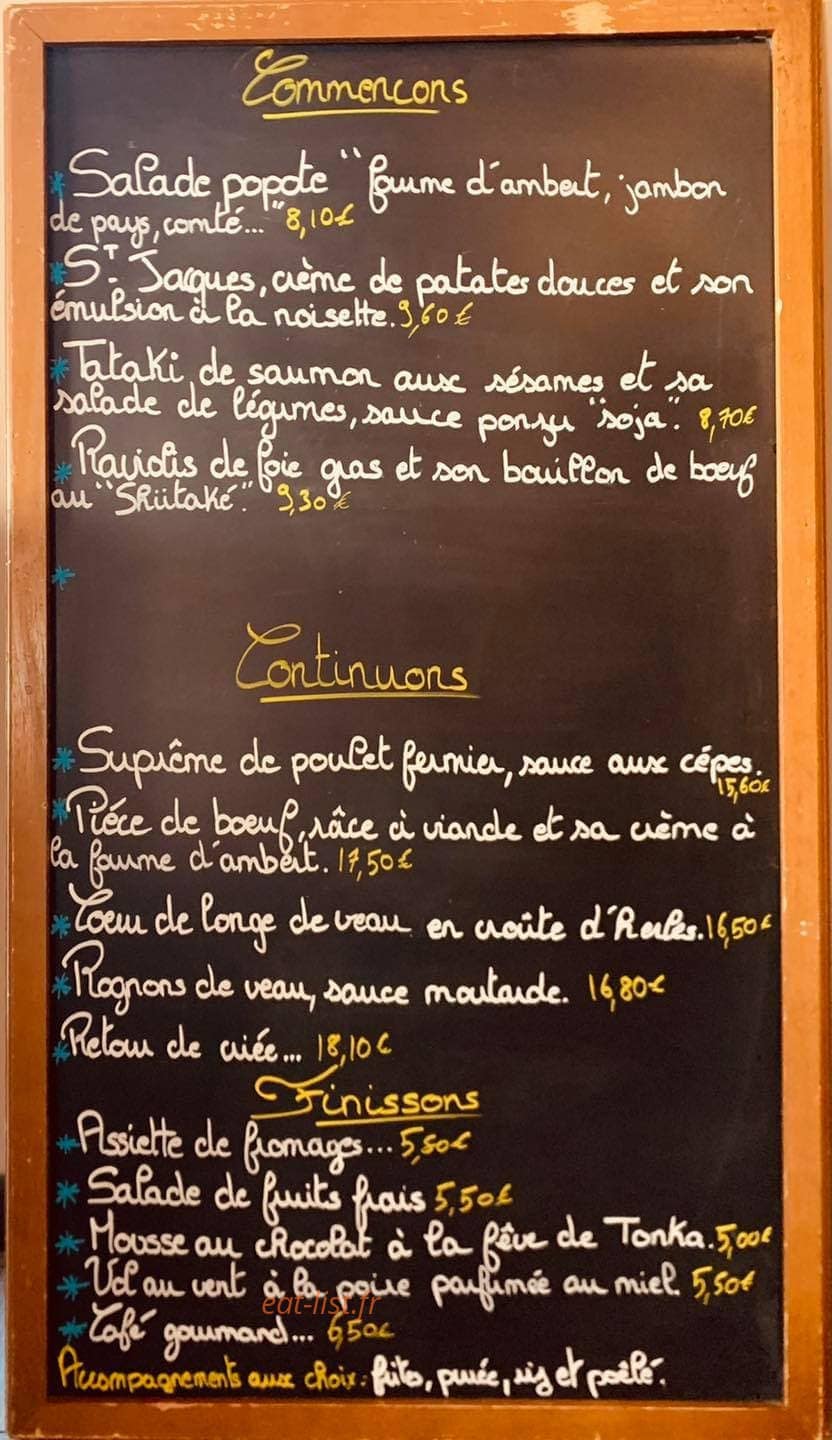 Commencons
* Salade popote "fourme d'ambert, jambon
de pays, comté..." 8,10€
* St. Jacques, crème de patates douces et son
émulsion à la noisette. 9,60€
* Tataki de saumon aux sésames et sa
salade de légumes, sauce ponzu "soja". 8,70€
* Raviolis de foie gras et son bouillon de boeuf
au "Shiitaké." 9,30€
*
Continuons
* Suprême de poulet fermier, sauce aux cépes.
15,60€
* Piéce de boeuf, râce à viande et sa crème à
la fourme d'ambert. 17,50€
* Coeur de longe de veau en croûte d'Herbes. 16,50€
* Rognons de veau, sauce moutarde. 16,80€
* Retour de criée... 18,10€
Finissons
* Assiette de fromages... 5,50€
* Salade de fruits frais 5,50€
* Mousse au chocolat à la fêve de Tonka. 5,00€
* Vol au vent à la poire parfumée au miel. 5,50€
eat-list.fr
* Café gourmand... 6,50€
Accompagnements aux choix: frites, purée, riz et poêlé.